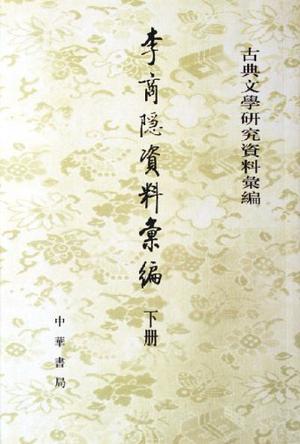 古典文學研究資料彙編
李商隐資料彙編
下册
中華書局